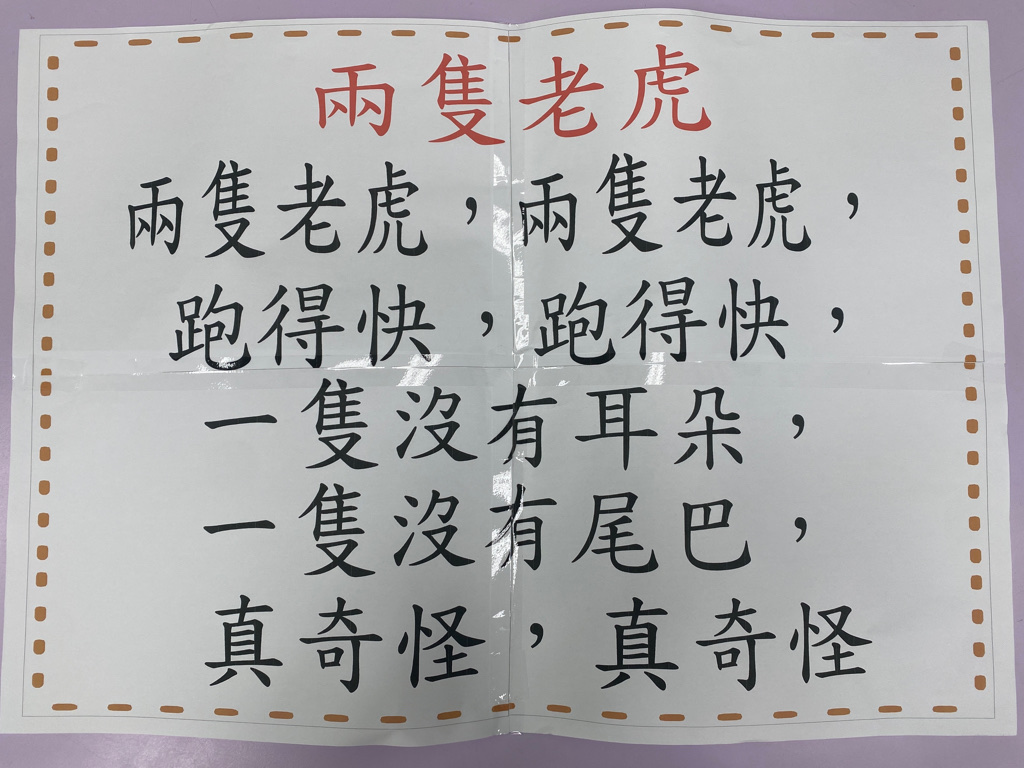 兩隻老虎
兩隻老虎，兩隻老虎，
跑得快，跑得快，
一隻沒有耳朵，
一隻沒有尾巴，
真奇怪，真奇怪